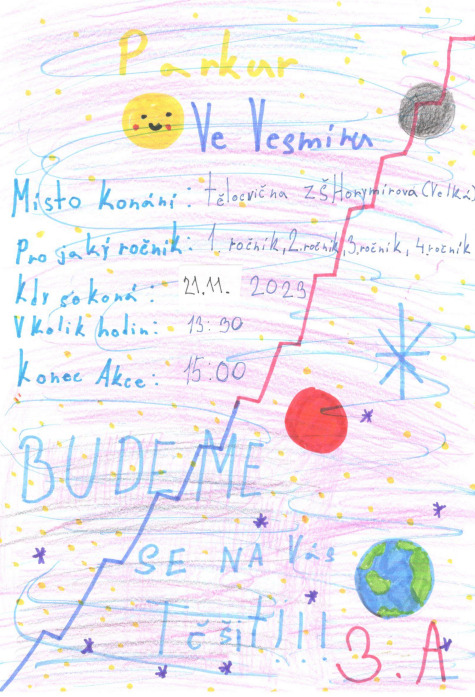 Parkur
Ve Vesmíru
Místo Konání: tělocvična ZŠ Horymírova (Velká)
Pro jaký ročník: 1. ročník, 2. ročník, 3. ročník, 4. ročník
Kdy se koná: 21.11. 2023
V kolik hodin: 13:30
Konec Akce: 15:00
BUDEME
SE NA Vás
Těšit!!!
3.A